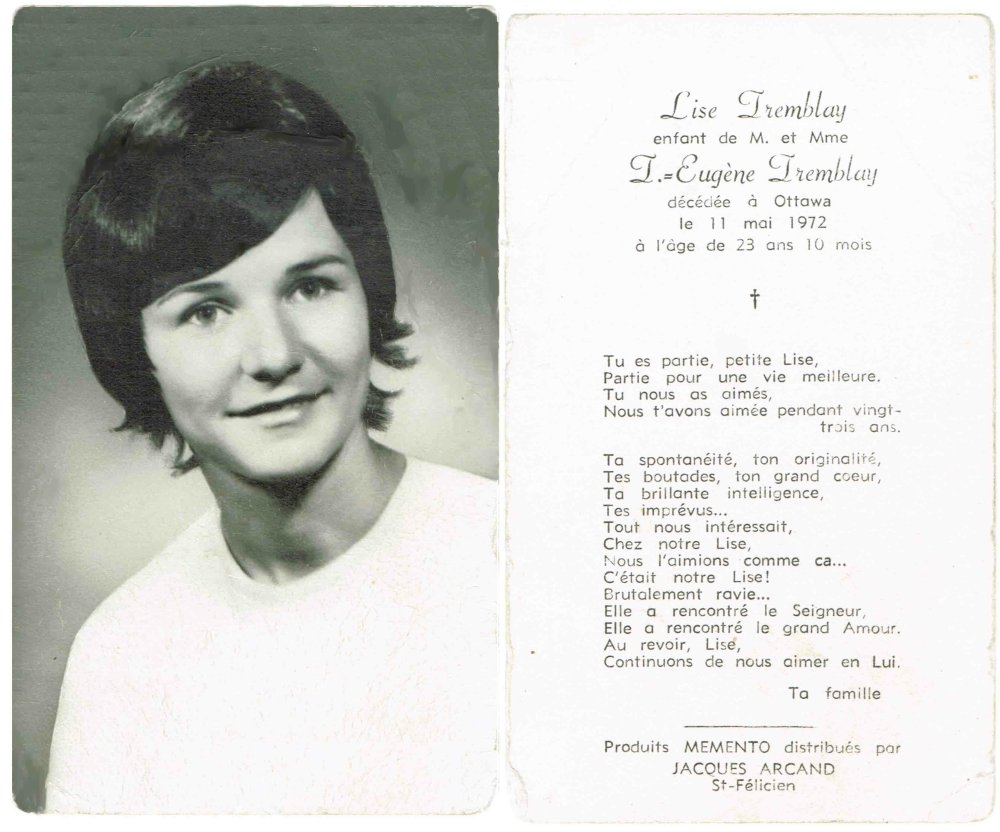 Lise Tremblay
enfant de M. et Mme
T.-Eugène Tremblay
décédée à Ottawa
le 11 mai 1972
à l'âge de 23 ans 10 mois
†
Tu es partie, petite Lise,
Partie pour une vie meilleure.
Tu nous as aimés,
Nous t'avons aimée pendant vingt-
trois ans.
Ta spontanéité, ton originalité,
Tes boutades, ton grand coeur,
Ta brillante intelligence,
Tes imprévus...
Tout nous intéressait,
Chez notre Lise,
Nous l'aimions comme ça...
C'était notre Lise!
Brutalement ravie...
Elle a rencontré le Seigneur,
Elle a rencontré le grand Amour.
Au revoir, Lise,
Continuons de nous aimer en Lui.
Ta famille
Produits MEMENTO distribués par
JACQUES ARCAND
St-Félicien